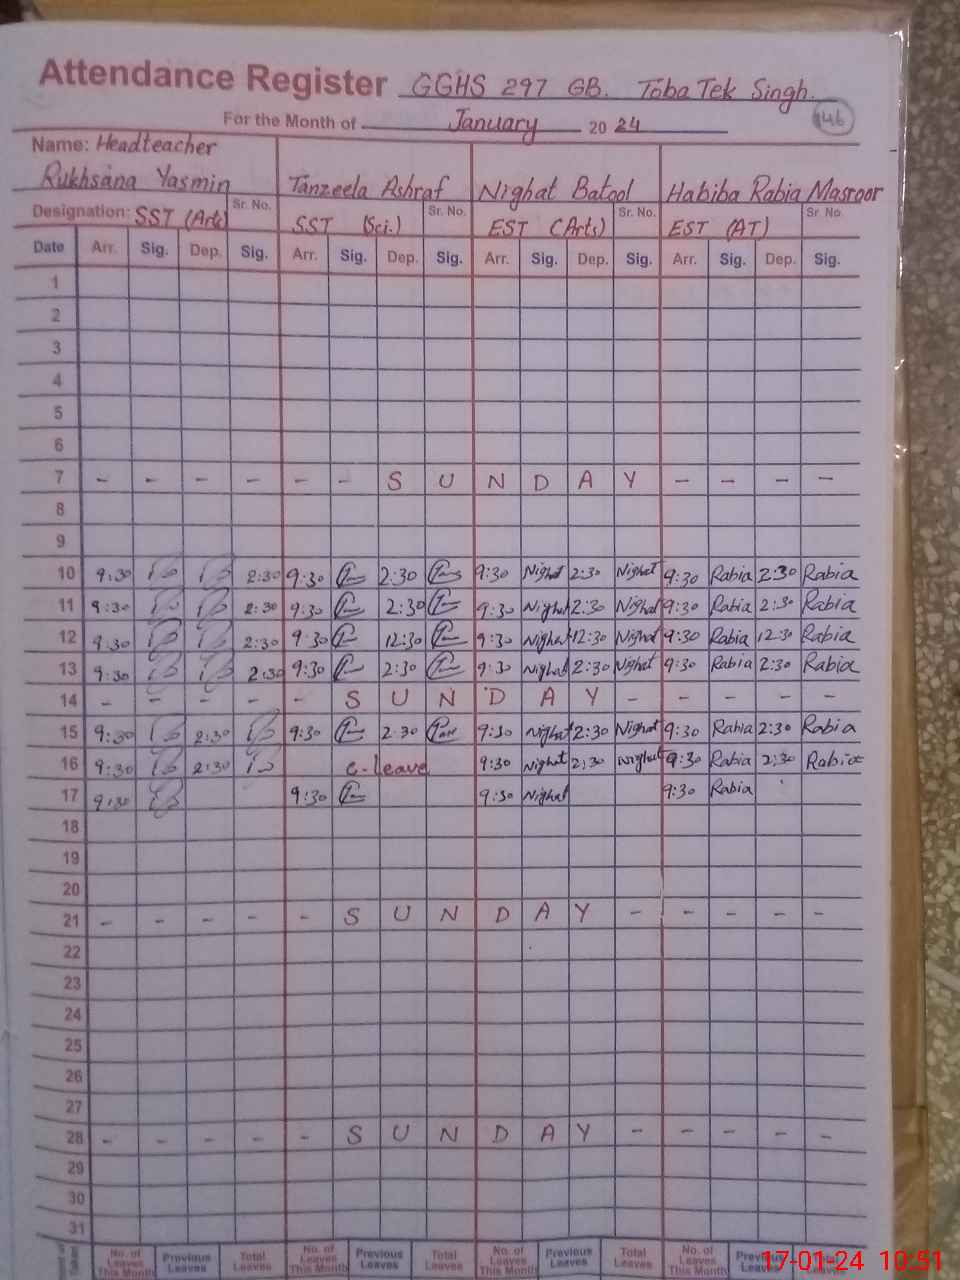 Attendance Register GGHS 297 GB. Toba Tek Singh.
For the Month of January 2024
46
Name: Headteacher
Rukhsana Yasmin Tanzeela Ashraf Nighat Batool Habiba Rabia Masroor
Designation: SST (Arts) Sr. No. SST (Sci.) Sr. No. EST (Arts) Sr. No. EST (AT) Sr. No.
Date Arr. Sig. Dep. Sig. Arr. Sig. Dep. Sig. Arr. Sig. Dep. Sig. Arr. Sig. Dep. Sig.
1
2
3
4
5
6
7 - - - - - - S U N D A Y - - - -
8
9
10 9:30 2:30 9:30 2:30 9:30 Nighat 2:30 Nighat 9:30 Rabia 2:30 Rabia
11 9:30 2:30 9:30 2:30 9:30 Nighat 2:30 Nighat 9:30 Rabia 2:30 Rabia
12 9:30 2:30 9:30 12:30 9:30 Nighat 12:30 Nighat 9:30 Rabia 12:30 Rabia
13 9:30 2:30 9:30 2:30 9:30 Nighat 2:30 Nighat 9:30 Rabia 2:30 Rabia
14 - - - - - S U N D A Y - - - - -
15 9:30 2:30 9:30 2:30 9:30 Nighat 2:30 Nighat 9:30 Rabia 2:30 Rabia
16 9:30 2:30 c. Leave 9:30 Nighat 2:30 Nighat 9:30 Rabia 2:30 Rabia
17 9:30 9:30 9:30 Nighat 9:30 Rabia
18
19
20
21 - - - - - S U N D A Y - - - - -
22
23
24
25
26
27
28 - - - - - S U N D A Y - - - - -
29
30
31
No. of Leaves This Month Previous Leaves Total Leaves No. of Leaves This Month Previous Leaves Total Leaves No. of Leaves This Month Previous Leaves Total Leaves No. of Leaves This Month Leaves
17-01-24 10:51